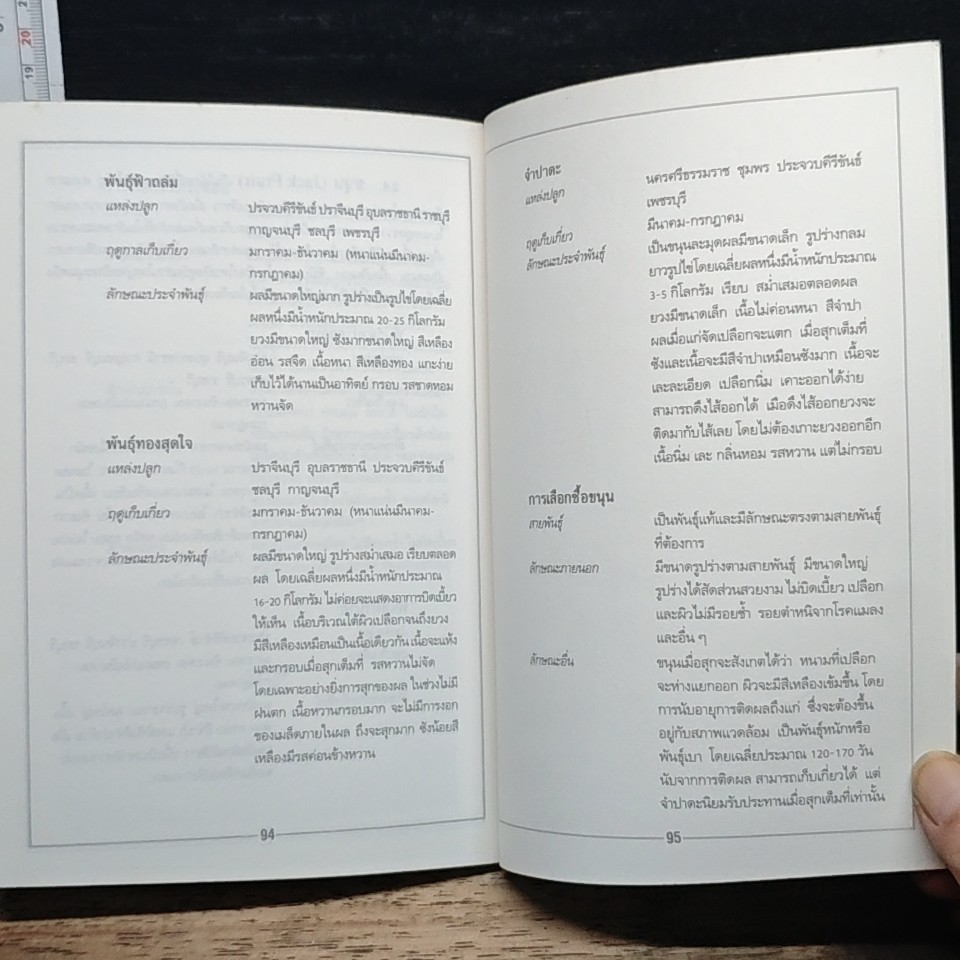 พันธุ์ฟ้าถล่ม
แหล่งปลูก ประจวบคีรีขันธ์ ปราจีนบุรี อุบลราชธานี ราชบุรี
กาญจนบุรี ชลบุรี เพชรบุรี
ฤดูกาลเก็บเกี่ยว มกราคม-ธันวาคม (หนาแน่นมีนาคม-
กรกฎาคม)
ลักษณะประจำพันธุ์ ผลมีขนาดใหญ่มาก รูปร่างเป็นรูปไข่โดยเฉลี่ย
ผลหนึ่งมีน้ำหนักประมาณ 20-25 กิโลกรัม
ยวงมีขนาดใหญ่ ซังมากขนาดใหญ่ สีเหลือง
อ่อน รสจืด เนื้อหนา สีเหลืองทอง แกะง่าย
เก็บไว้ได้นานเป็นอาทิตย์ กรอบ รสชาดหอม
หวานจัด
พันธุ์ทองสุดใจ
แหล่งปลูก ปราจีนบุรี อุบลราชธานี ประจวบคีรีขันธ์
ชลบุรี กาญจนบุรี
ฤดูเก็บเกี่ยว มกราคม-ธันวาคม (หนาแน่นมีนาคม-
กรกฎาคม)
ลักษณะประจำพันธุ์ ผลมีขนาดใหญ่ รูปร่างสม่ำเสมอ เรียบตลอด
ผล โดยเฉลี่ยผลหนึ่งมีน้ำหนักประมาณ
16-20 กิโลกรัม ไม่ค่อยจะแสดงอาการบิดเบี้ยว
ให้เห็น เนื้อบริเวณใต้ผิวเปลือกจนถึงยวง
มีสีเหลืองเหมือนเป็นเนื้อเดียวกัน เนื้อจะแห้ง
และกรอบเมื่อสุกเต็มที่ รสหวานไม่จัด
โดยเฉพาะอย่างยิ่งการสุกของผล ในช่วงไม่มี
ฝนตก เนื้อหวานกรอบมาก จะไม่มีการงอก
ของเมล็ดภายในผล ถึงจะสุกมาก ซังน้อยสี
เหลืองมีรสค่อนข้างหวาน
94
จำปาดะ
แหล่งปลูก นครศรีธรรมราช ชุมพร ประจวบคีรีขันธ์
เพชรบุรี
ฤดูเก็บเกี่ยว มีนาคม-กรกฎาคม
ลักษณะประจำพันธุ์ เป็นขนุนละมุดผลมีขนาดเล็ก รูปร่างกลม
ยาวรูปไข่โดยเฉลี่ยผลหนึ่งมีน้ำหนักประมาณ
3-5 กิโลกรัม เรียบ สม่ำเสมอตลอดผล
ยวงมีขนาดเล็ก เนื้อไม่ค่อนหนา สีจำปา
ผลเมื่อแก่จัดเปลือกจะแตก เมื่อสุกเต็มที่
ซังและเนื้อจะมีสีจำปาเหมือนซังมาก เนื้อจะ
เละละเอียด เปลือกนิ่ม เคาะออกได้ง่าย
สามารถดึงไส้ออกได้ เมื่อดึงไส้ออกยวงจะ
ติดมากับไส้เลย โดยไม่ต้องเกาะยวงออกอีก
เนื้อนิ่ม และ กลิ่นหอม รสหวาน แต่ไม่กรอบ
การเลือกซื้อขนุน
สายพันธุ์ เป็นพันธุ์แท้และมีลักษณะตรงตามสายพันธุ์
ที่ต้องการ
ลักษณะภายนอก มีขนาดรูปร่างตามสายพันธุ์ มีขนาดใหญ่
รูปร่างได้สัดส่วนสวยงาม ไม่บิดเบี้ยว เปลือก
และผิวไม่มีรอยช้ำ รอยตำหนิจากโรคแมลง
และอื่น ๆ
ลักษณะอื่น ขนุนเมื่อสุกจะสังเกตได้ว่า หนามที่เปลือก
จะห่างแยกออก ผิวจะมีสีเหลืองเข้มขึ้น โดย
การนับอายุการติดผลถึงแก่ ซึ่งจะต้องขึ้น
อยู่กับสภาพแวดล้อม เป็นพันธุ์หนักหรือ
พันธุ์เบา โดยเฉลี่ยประมาณ 120-170 วัน
นับจากการติดผล สามารถเก็บเกี่ยวได้ แต่
จำปาดะนิยมรับประทานเมื่อสุกเต็มที่เท่านั้น
95
19
20